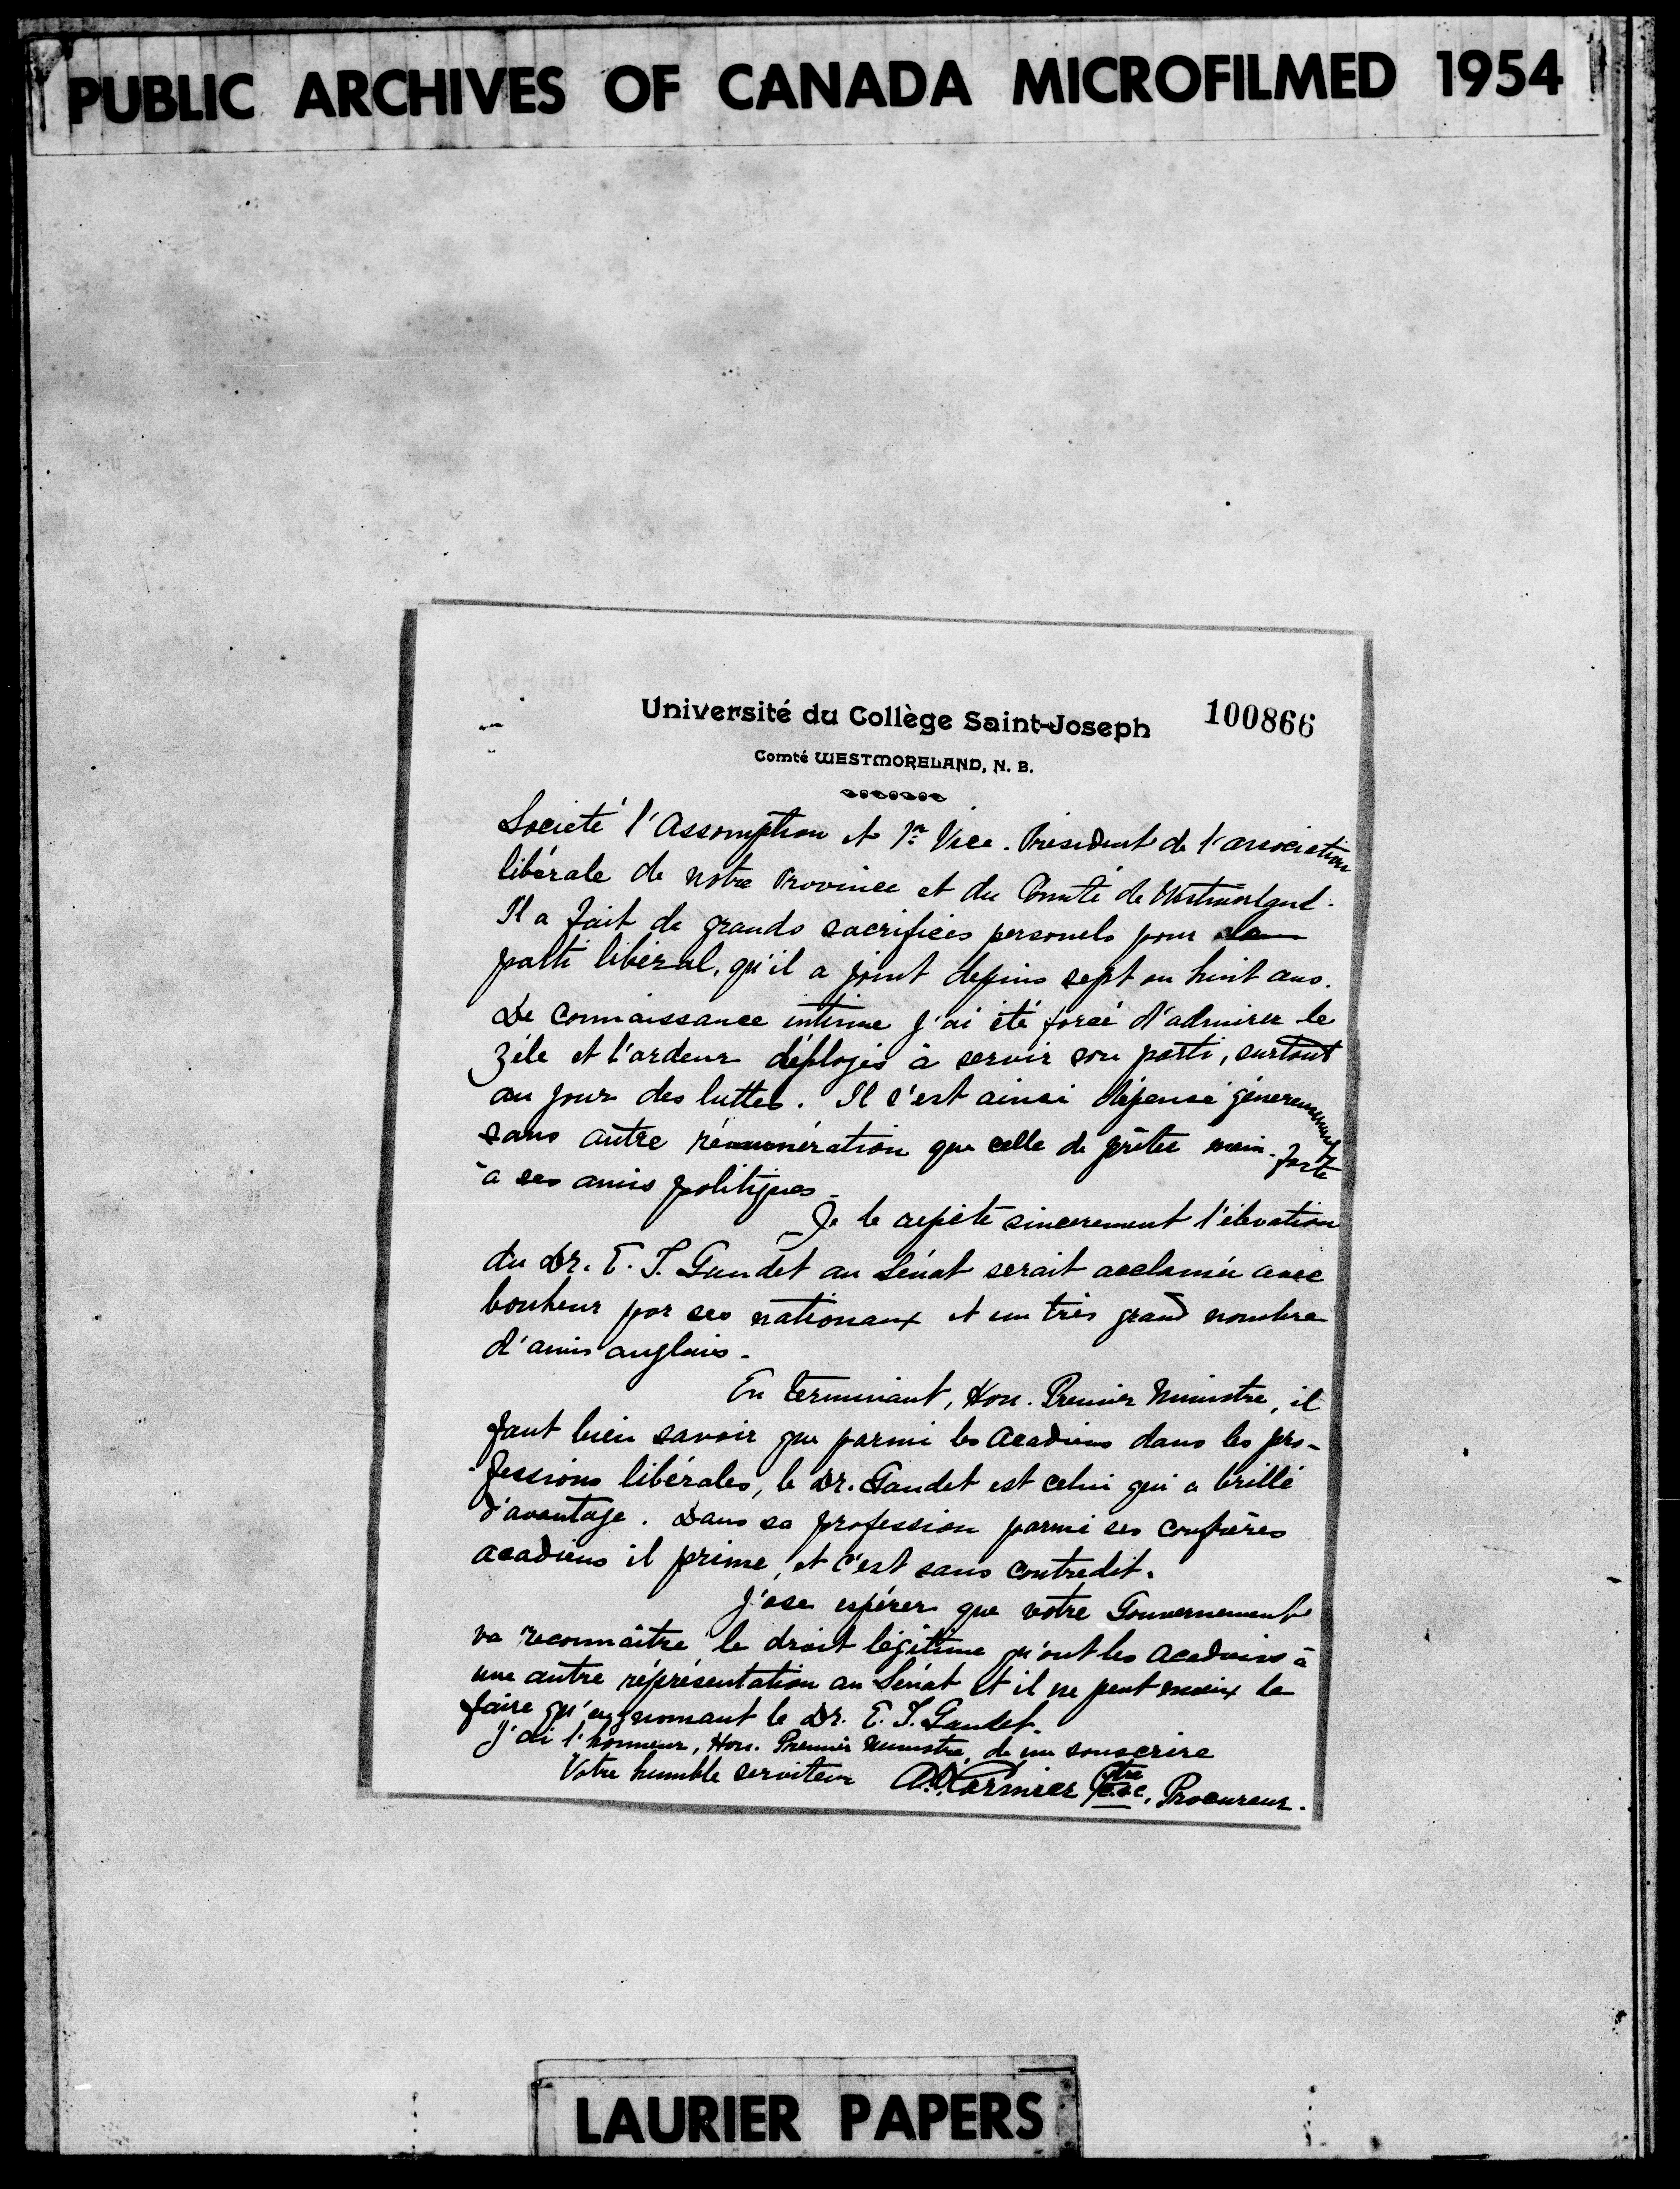 PUBLIC ARCHIVES OF CANADA MICROFILMED 1954
Université du Collège Saint-Joseph 100866
Comté WESTMORELAND, N. B.
Société l'Assomption et 1er Vice-Président de l'association
libérale de notre Province et du Comté de Westmorland.
Il a fait de grands sacrifices personels pour le
parti libéral, qu'il a joint depuis sept ou huit ans.
De connaissance intime j'ai été forcé d'admirer le
zèle et l'ardeur déployés à servir son parti, surtout
au jour des luttes. Il s'est ainsi dépensé
sans autre rémunération que celle de prêter main-forte
à ses amis politiques.
Je le répète sincerement l'élévation
du Dr. E. T. Gaudet au Sénat serait acclamée avec
bonheur par ses nationaux et un très grand nombre
d'amis anglais.
En terminant, Hon. Premier Ministre, il
faut bien savoir que parmi les Acadiens dans les pro-
fessions libérales, le Dr. Gaudet est celui qui a brillé
d'avantage. Dans sa profession parmi ses confrères
acadiens il prime, et c'est sans contredit.
J'ose espérer que votre Gouvernement
va reconnaître le droit légitime qu'ont les Acadiens à
une autre réprésentation au Sénat et il ne peut mieux le
faire qu'en nomant le Dr. E. T. Gaudet.
J'ai l'honneur, Hon. Premier Ministre, de me souscrire
Votre humble serviteur A. D. Cormier Ptre c.s.c, Procureur.
LAURIER PAPERS